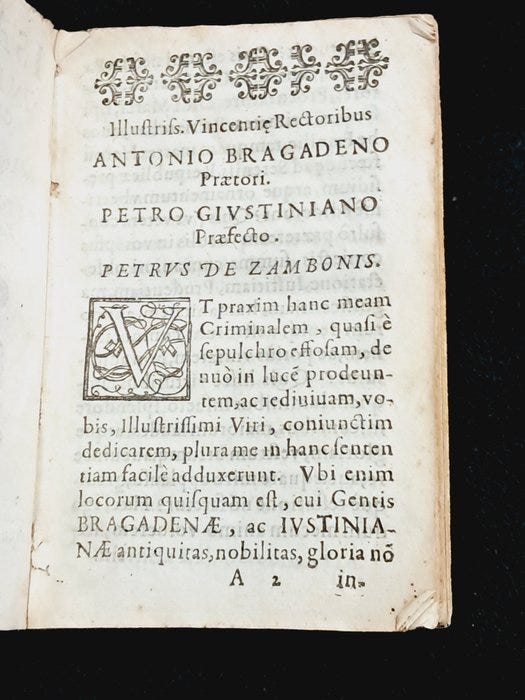 Illustriss. Vincentię Rectoribus
ANTONIO BRAGADENO
Prætori.
PETRO GIVSTINIANO
Præfecto.
PETRVS DE ZAMBONIS.
VT praxim hanc meam
Criminalem, quasi è
sepulchro effosam, de
nuò in lucē prodeun-
tem, ac rediuiuam, vo-
bis, Illustrissimi Viri, coniunctim
dedicarem, plura me in hanc senten
tiam facilè adduxerunt. Vbi enim
locorum quisquam est, cui Gentis
BRAGADENÆ, ac IVSTINIA-
NÆ antiquitas, nobilitas, gloria nō
A 2 in-